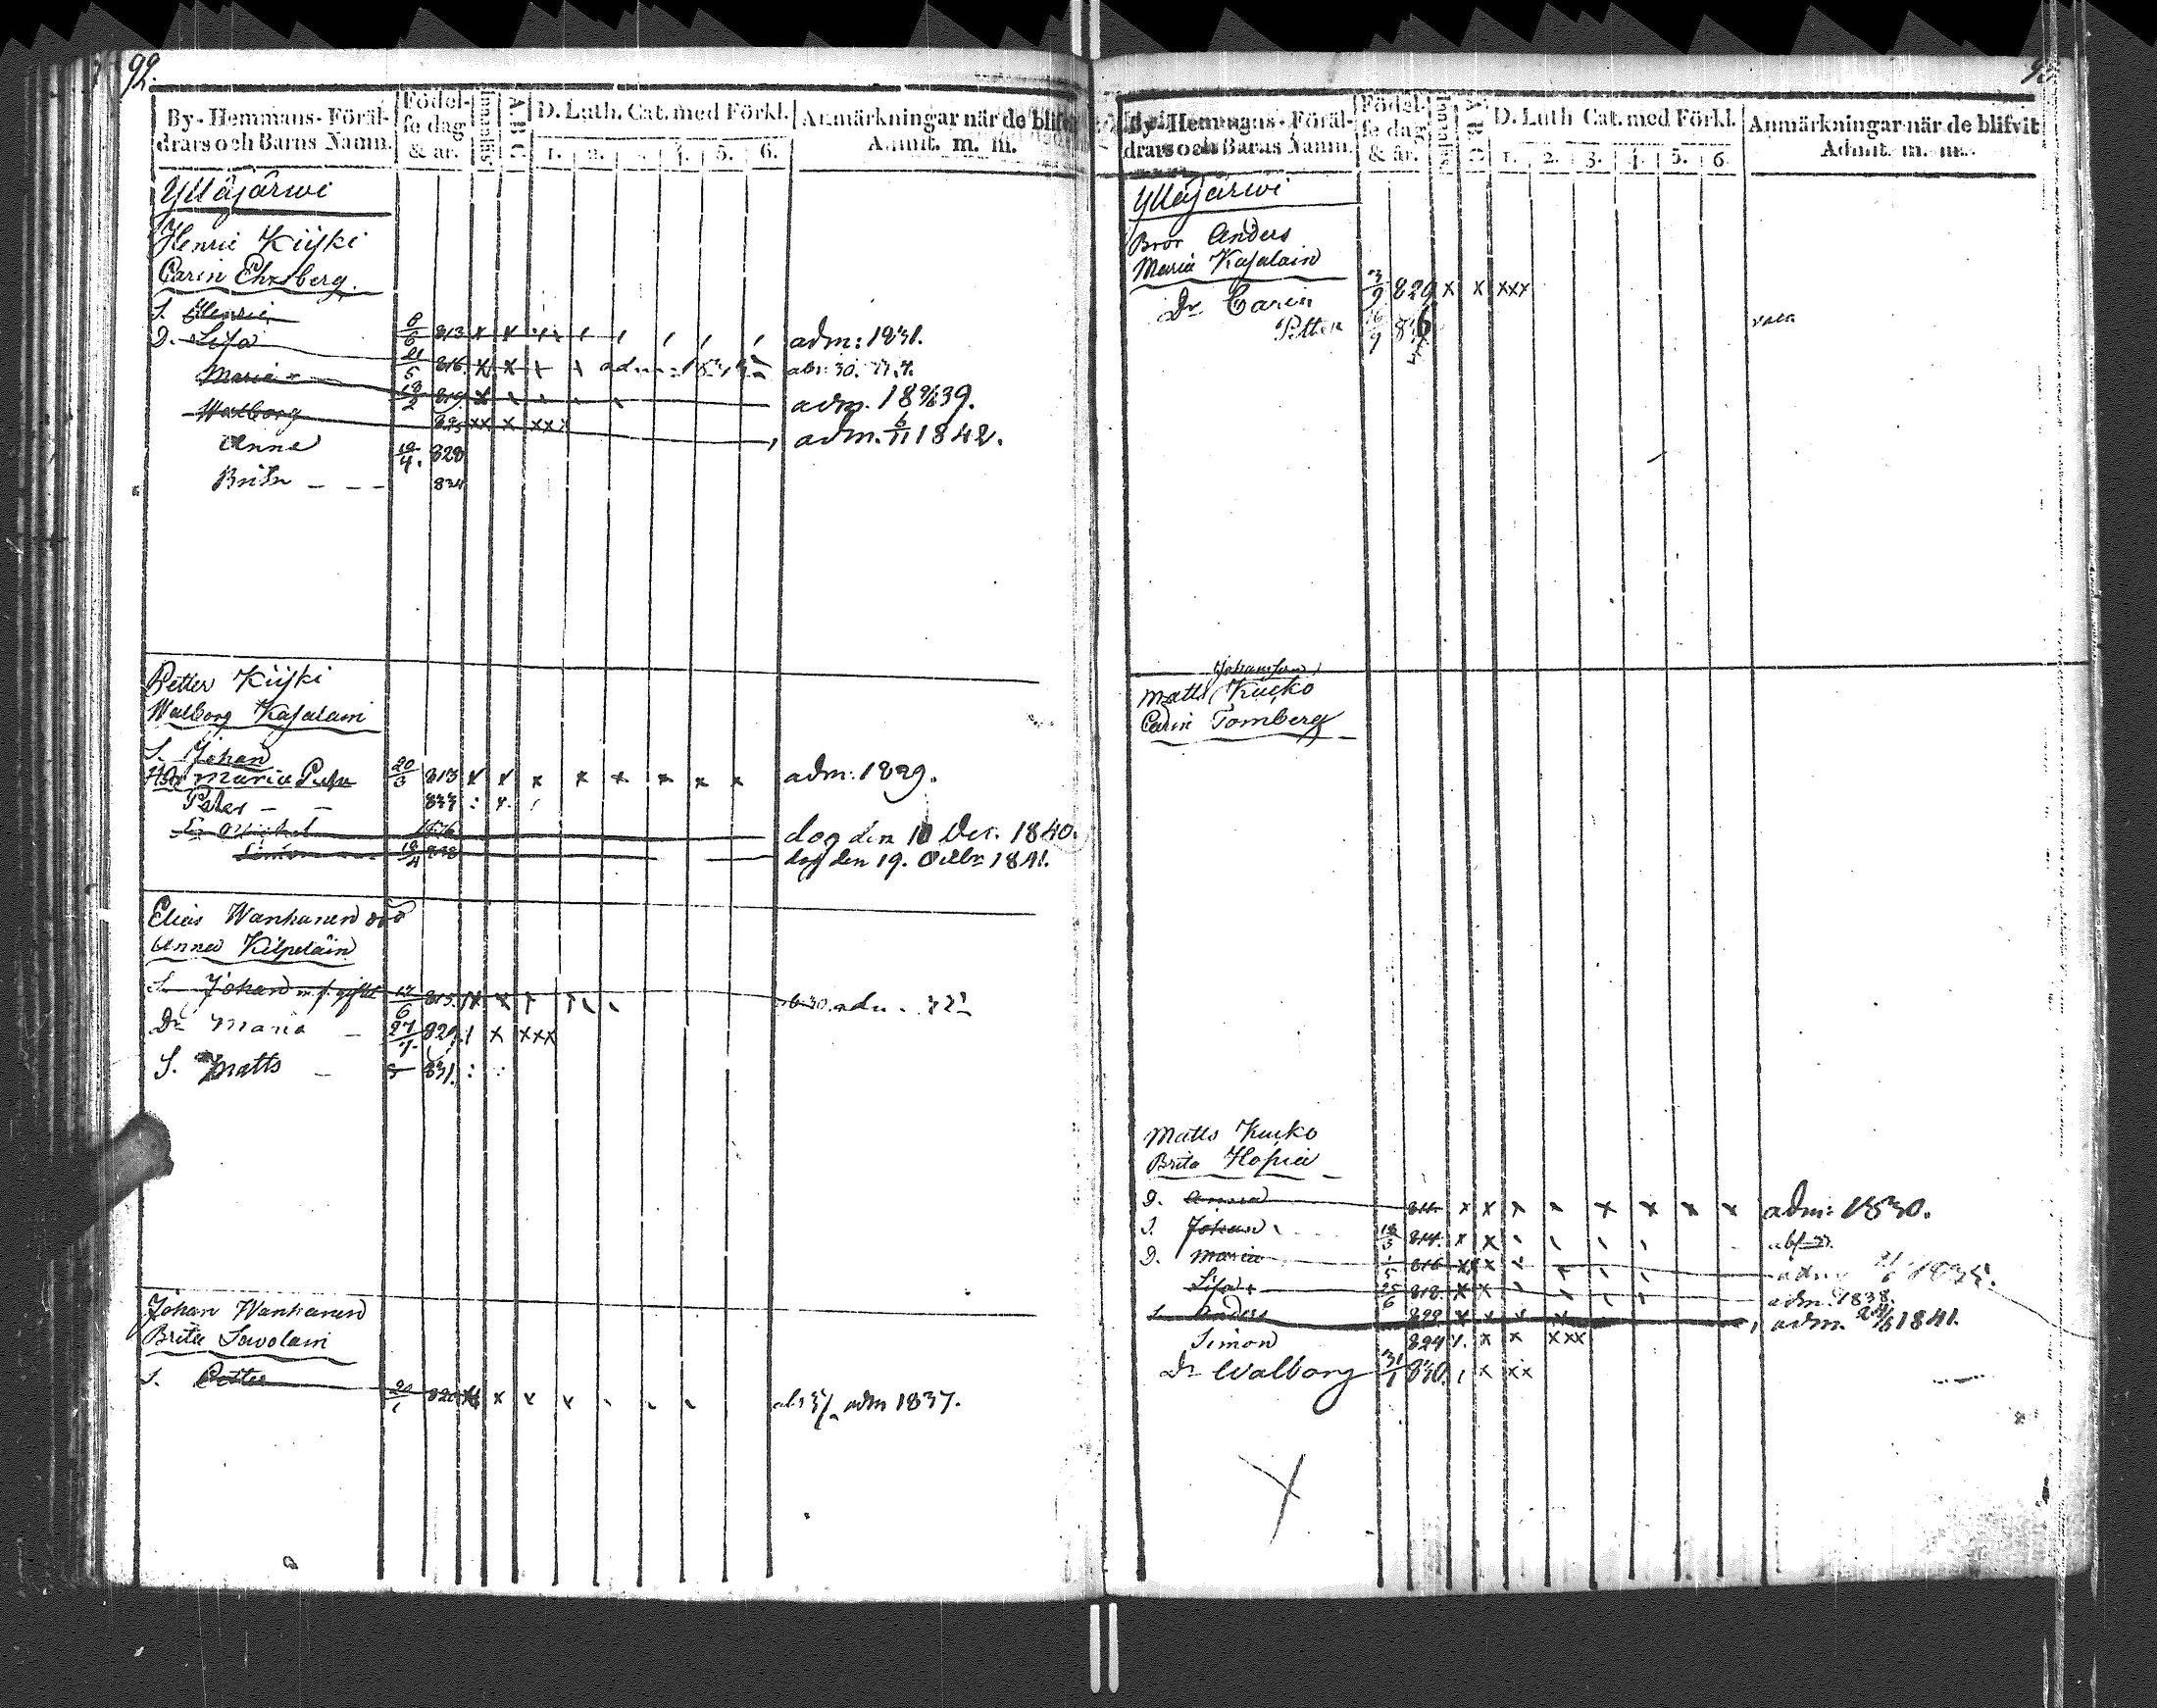 92.
By-Hemmans-Föräl-
drars och Barns Namn.
Födel-
se dag
& år.
Innanläs
A.B.C.
D. Luth. Cat. med Förkl.
1. 2. 3. 4. 5. 6.
Anmärkningar när de blifv
Admit. m. m.
Ylläjärwi
Henric Kiiski
Carin Ehrsberg
S. Henric
D. Lisa 8/6 813 x x adm: 1831.
Maria 21/5 816. x x
Walborg 18/2 819. x adm. 1839.
825 xx x xxx adm. 6/11 1842.
Anna 12/4. 828
Brita 834
Petter Kiiski
Walborg Kajalain
S. Johan
Maria 20/3 813 x x x x x x x x adm: 1829.
Peter 833
Michel dog den 10 Dec. 1840.
Simon 18/4 838 dog den 19. Octbr 1841.
Elias Wanhanen
Anna Kilpeläin
S. Johan 12/6 815.
Dr Maria 27/7. 829. x xxx
S. Matts 831.
Johan Wanhanen
Brita Sawolain
S. Petter 20/1 820 x x x x adm 1837.
By-Hemmans-Föräl-
drars och Barns Namn.
Födel-
se dag
& år.
Innanläs
A.B.C.
D. Luth Cat. med Förkl.
1. 2. 3. 4. 5. 6.
Anmärkningar när de blifvit
Admit. m. m.
Ylläjärwi
Bror Anders
Maria Kajalain
Dr Carin 829 x x xxx
Petter
Johansson
Matts Kucko
Carin Tomberg
Matts Kucko
Brita Hopia
D. Anna 811 x x x x x x x x adm: 1830.
S. Johan 18/3 814. x x
D. Maria 816 x x 1835.
Lisa 25/6 818. x x adm: 1838.
S. Anders 822 x x x x adm. 1841.
Simon 824 x x xxx
Dr Walborg 31/1 830. x xx